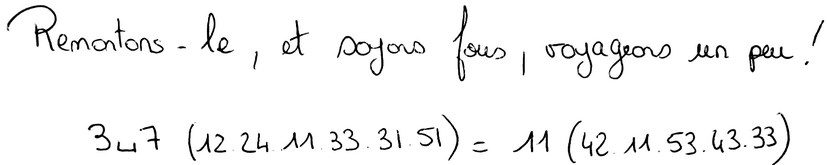 Remontons-le, et soyons fous, voyageons un peu!
3␣7 (12.24.11.33.31.51) = 11 (42.11.53.43.33)